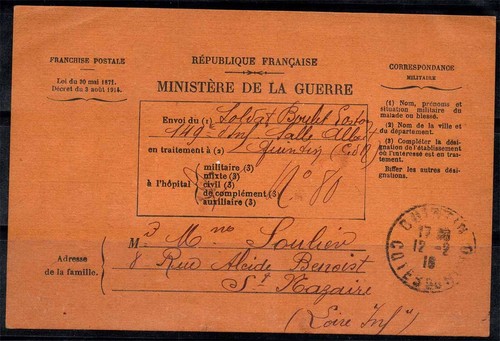 FRANCHISE POSTALE
Loi du 30 mai 1871.
Décret du 3 août 1914.
RÉPUBLIQUE FRANÇAISE
MINISTÈRE DE LA GUERRE
CORRESPONDANCE
MILITAIRE
(1) Nom, prénoms et
situation militaire du
malade ou blessé.
(2) Nom de la ville et
du département.
(3) Compléter la dési-
gnation de l'établissement
où l'intéressé est en trai-
tement.
Biffer les autres dési-
gnations.
Envoi du (1) Soldat Boulet
149e Inf Salle
en traitement à (2) Quintin (C.d.N)
à l'hôpital
militaire (3)
mixte (3)
civil (3)
de complément (3)
auxiliaire (3)
No 80
QUINTIN
12-2
16
COTES DU NORD
Adresse
de la famille.
M me Soulier
8 Rue Alcide Benoist
St Nazaire
(Loire Infre)